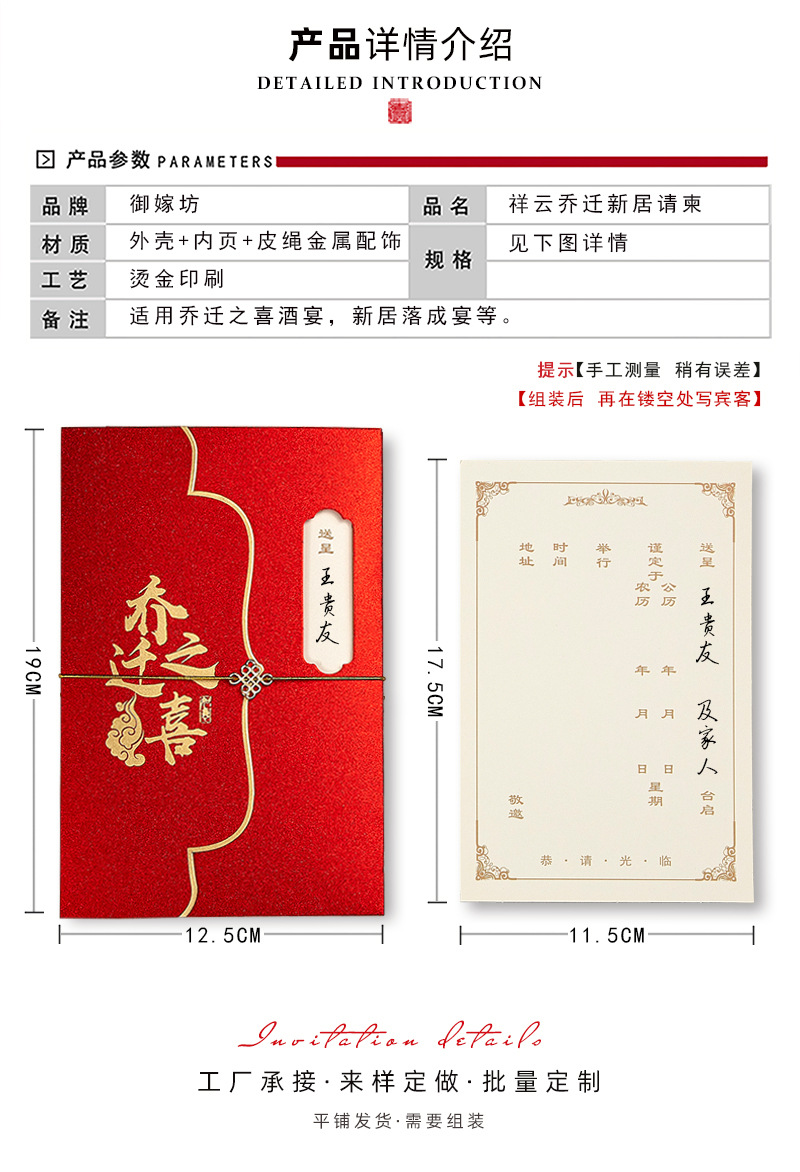 产品详情介绍
DETAILED INTRODUCTION
产品参数 PARAMETERS
品牌 御嫁坊 品名 祥云乔迁新居请柬
材质 外壳+内页+皮绳金属配饰 规格 见下图详情
工艺 烫金印刷
备注 适用乔迁之喜酒宴，新居落成宴等。
提示【手工测量 稍有误差】
【组装后 再在镂空处写宾客】
19CM
乔迁之喜
送呈 王贵友
12.5CM
17.5CM
送呈 王贵友 及家人 台启
谨定于
公历 年 月 日
农历 年 月 日
星期
举行
时间
地址
敬邀
恭·请·光·临
11.5CM
Invitation details
工厂承接·来样定做·批量定制
平铺发货·需要组装